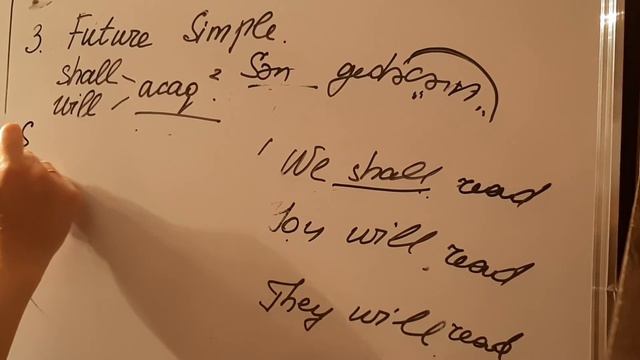 3. Future Simple.
shall
will
acaq?
Sən
We shall read
You will read
They will read
S